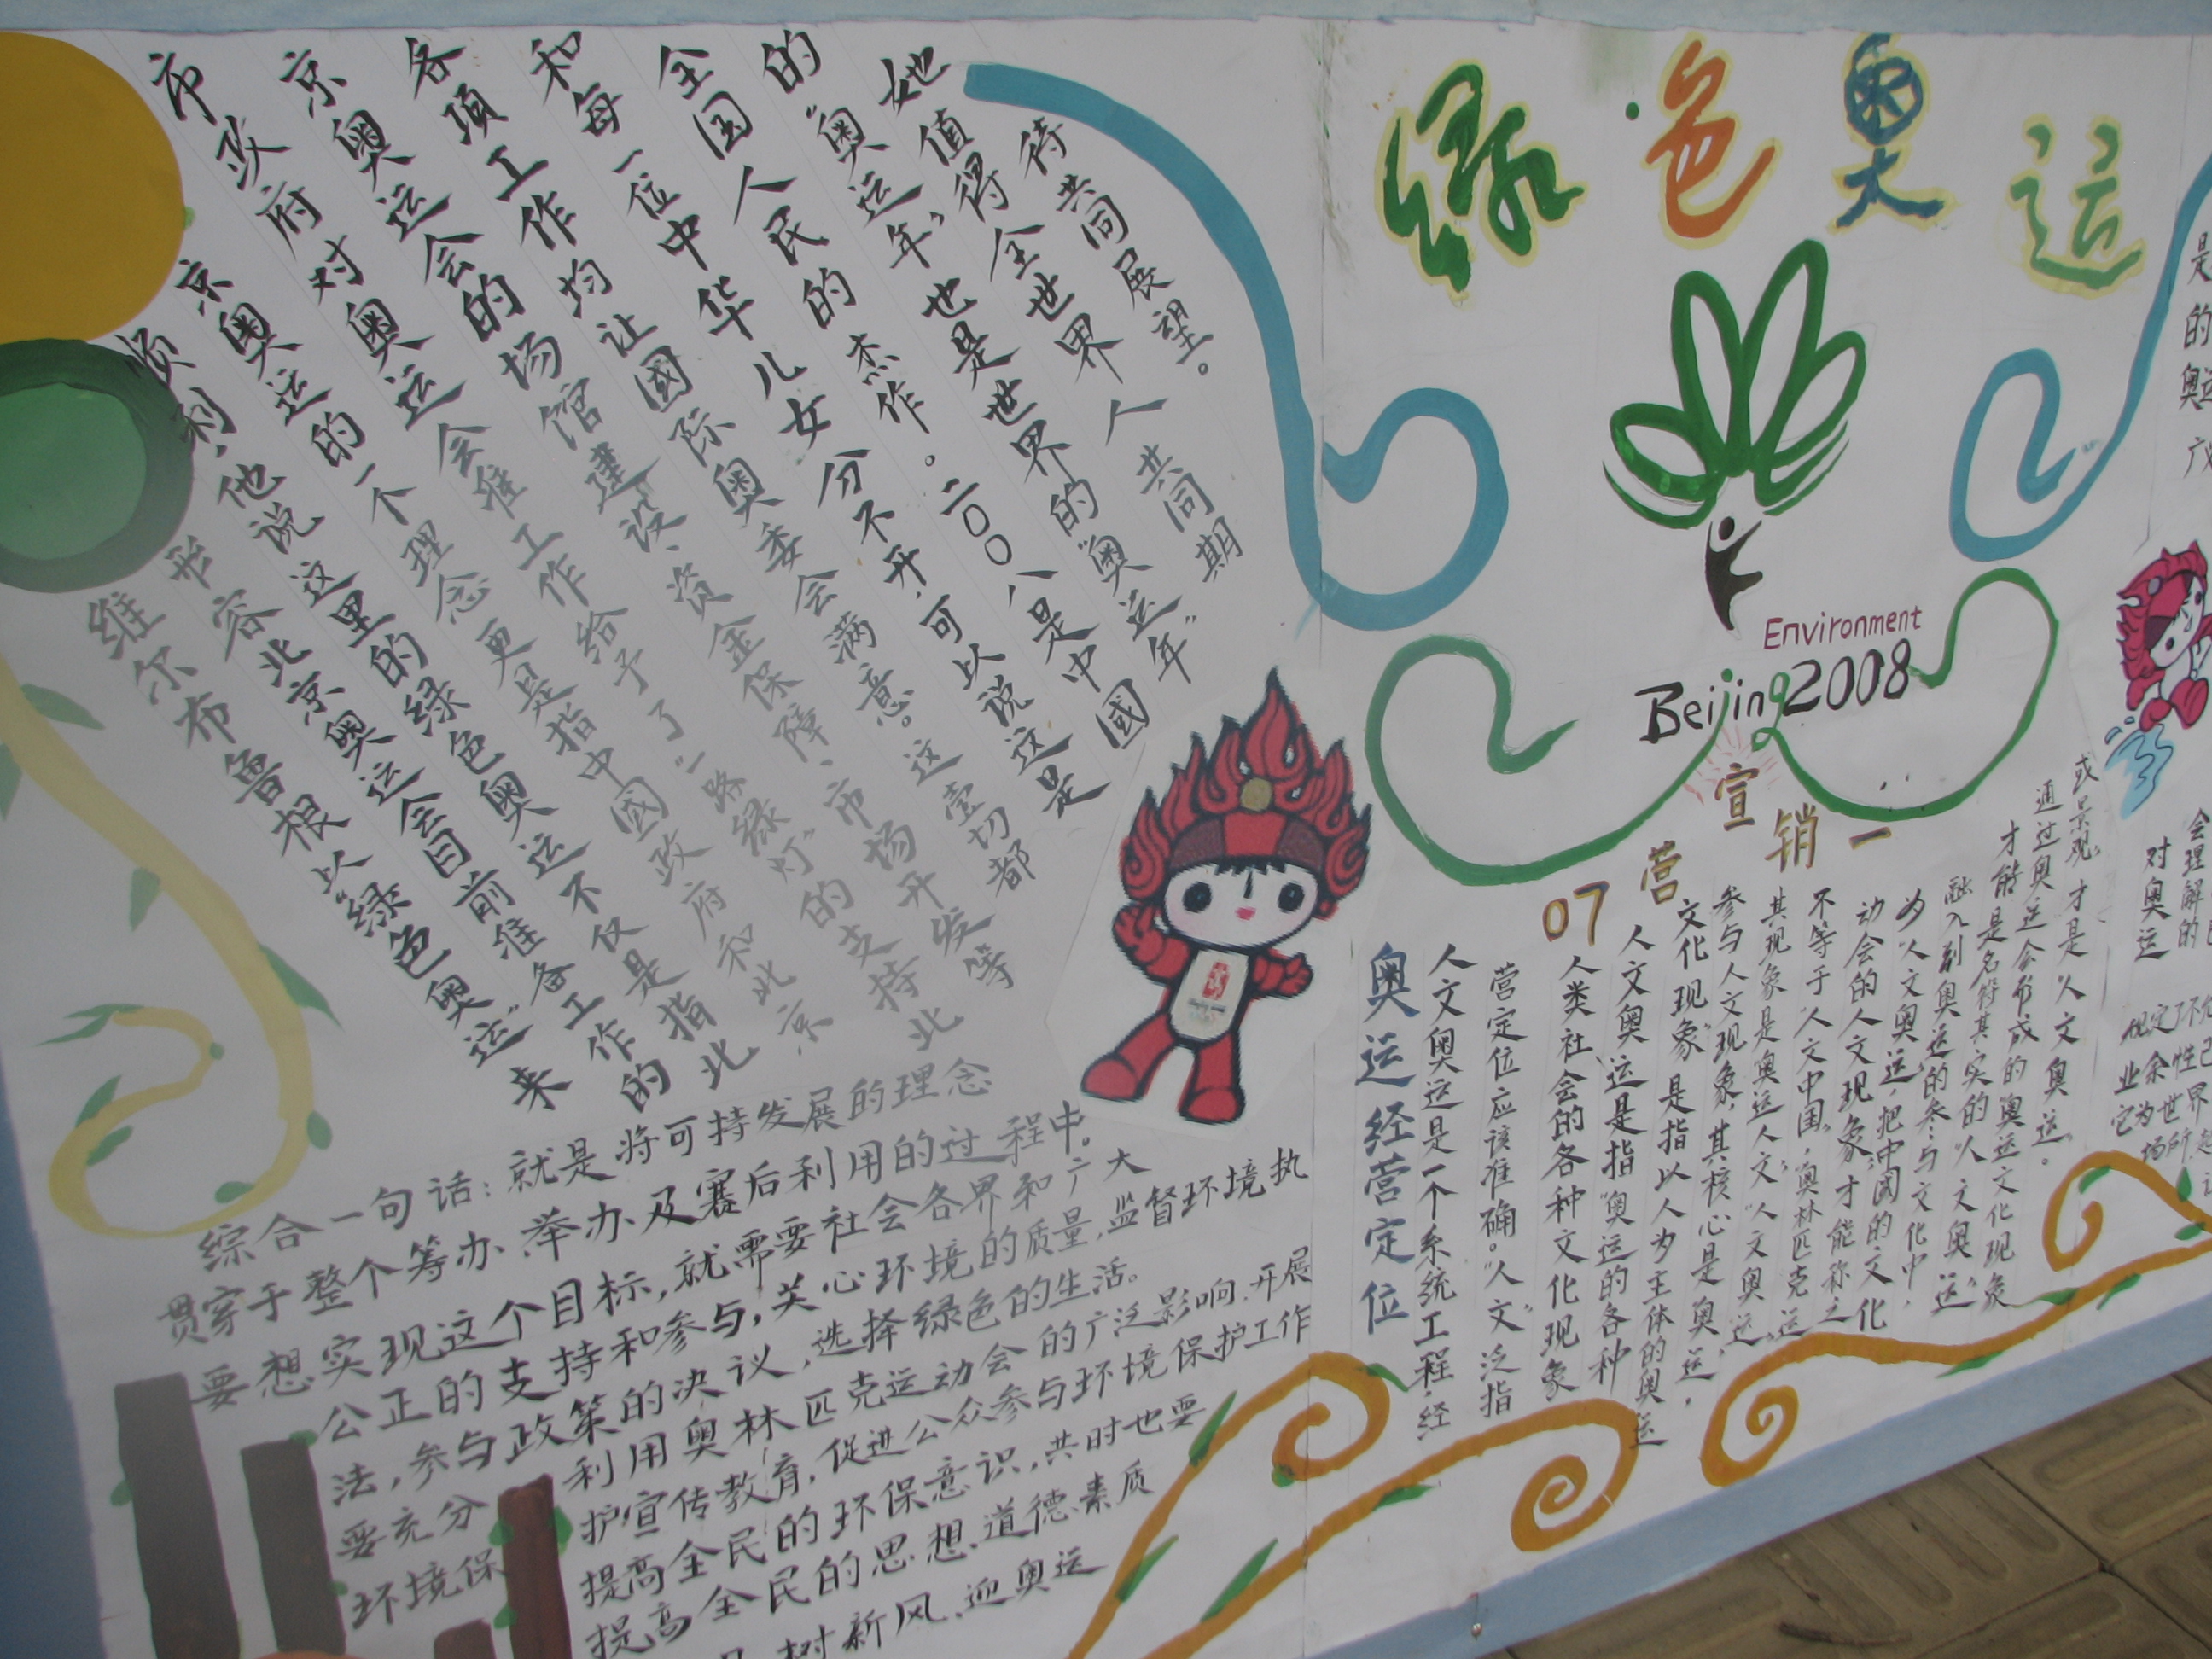 维尔布鲁根以“绿色奥运”来
形容北京奥运会目前准备工作的
顺利，他说这里的绿色奥运不仅是指北
京奥运的一个理念更是指中國政府和北京
市政府对奥运会准工作给予了“一路绿灯”的支持北
京奥运会的场馆建设、资金保障、市场开发等
各項工作均让國际奥委会满意。这壹切都
和每一位中华儿女分不开，可以说这是
全国人民的杰作。二〇〇八是中國
的“奥运年”也是世界的“奥运年”
她值得全世界人共同期
待共同展望。
综合一句话：就是将可持发展的理念
贯穿于整个筹办、举办及赛后利用的过程中。
要想实现这个目标，就需要社会各界和广大
公正的支持和参与，关心环境的质量，监督环境执
法，参与政策的决议，选择绿色的生活。
要充分利用奥林匹克运动会的广泛影响，开展
环境保护宣传教育，促进公众参与环境保护工作
提高全民的环保意识，共时也要
提高全民的思想、道德、素质
树新风、迎奥运
绿色奥运
Environment
Beijing2008
07营宣销一
奥运经营定位
人文奥运是一个系统工程，经
营定位应该准确。“人文”泛指
人类社会的各种文化现象
人文奥运是指“奥运的各种
文化现象”是指以人为主体的奥运
参与人文现象，其核心是奥运，
其现象是奥运人文“人文奥运”
不等于“人文中国”，奥林匹克运
动会的人文现象才能称之
为“人文奥运”，把中国的文化
融入到奥运的参与文化中，
才能是名符其实的“人文奥运”
通过奥运会形成的奥运文化现象
或景观，才是“人文奥运”。
对奥运
会理解的
业余性
它为世界